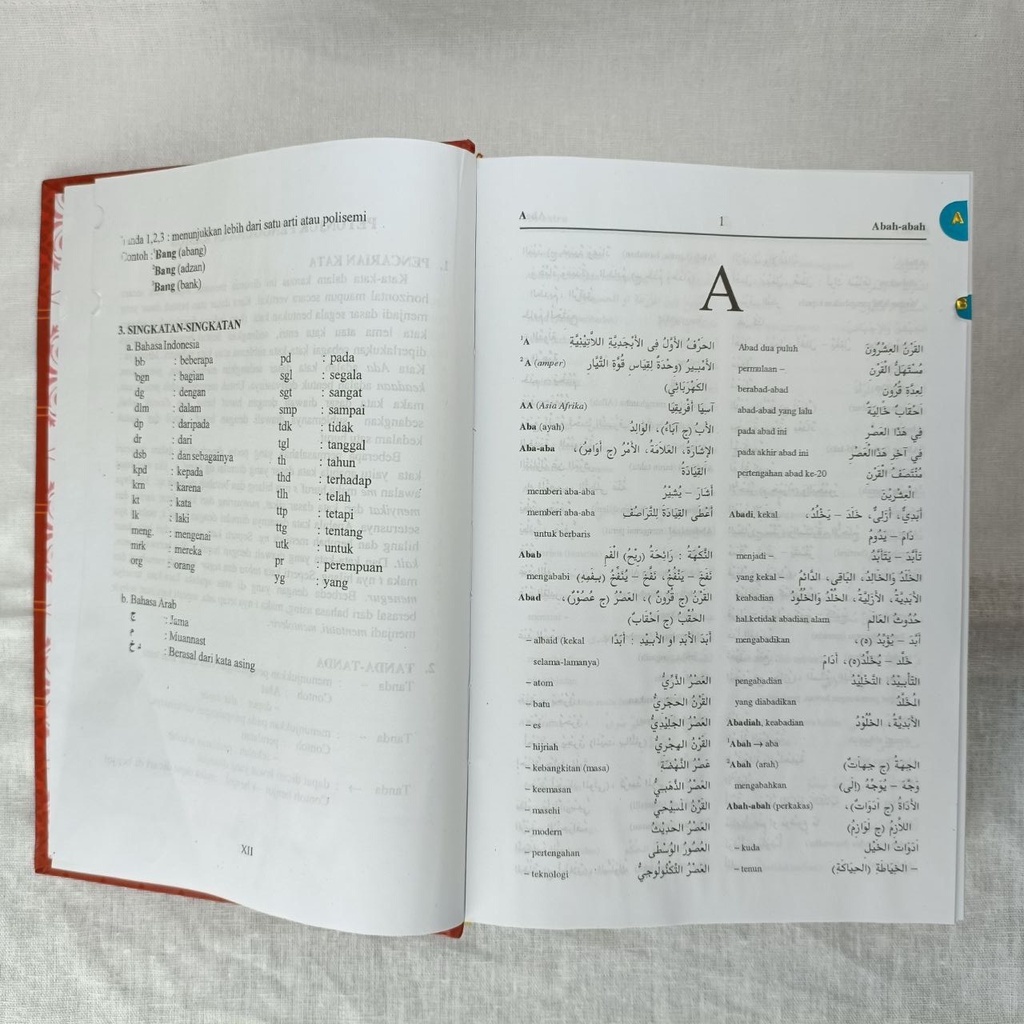 Tanda 1,2,3 : menunjukkan lebih dari satu arti atau polisemi
Contoh : ¹Bang (abang)
²Bang (adzan)
³Bang (bank)
3. SINGKATAN-SINGKATAN
a. Bahasa Indonesia
bb : beberapa pd : pada
bgn : bagian sgl : segala
dg : dengan sgt : sangat
dlm : dalam smp : sampai
dp : daripada tdk : tidak
dr : dari tgl : tanggal
dsb : dan sebagainya th : tahun
kpd : kepada thd : terhadap
krn : karena tlh : telah
kt : kata ttp : tetapi
lk : laki ttg : tentang
meng. : mengenai utk : untuk
mrk : mereka pr : perempuan
org : orang yg : yang
b. Bahasa Arab
ج : Jama
م : Muannast
د خ : Berasal dari kata asing
XII
A 1 Abah-abah
A
B
A
¹A الحَرْفُ الأَوَّلُ فِى الأَبْجَدِيَّةِ اللاَّتِيْنِيَّةِ
²A (amper) الأَمْبِيرُ (وَحْدَةٌ لِقِيَاسِ قُوَّةِ التَّيَّارِ
الكَهْرَبَائِي)
AA (Asia Afrika) آسِيَا أَفْرِيقِيَا
Aba (ayah) الأَبُ (ج آبَاءٌ)، الوَالِدُ
Aba-aba الإِشَارَةُ، العَلاَمَةُ، الأَمْرُ (ج أَوَامِرُ)،
القِيَادَةُ
memberi aba-aba أَشَارَ – يُشِيْرُ
memberi aba-aba أَعْطَى القِيَادَةَ لِلتَّرَاصُفِ
untuk berbaris
Abab النَّكْهَةُ : رَائِحَةُ (رِيْحُ) الْفَمِ
mengababi نَفَخَ – يَنْفُخُ، نَفَّخَ – يُنَفِّخُ (بِفَمِهِ)
Abad القَرْنُ (ج قُرُونٌ )، العَصْرُ (ج عُصُوْرٌ)،
الحُقْبُ (ج أَحْقَابٌ)
– albaid (kekal أَبَدَ الأَبَدِ او الأَبِيْدِ : أَبَدًا
selama-lamanya)
– atom العَصْرُ الذَّرِّيُّ
– batu القَرْنُ الحَجَرِيُّ
– es العَصْرُ الجَلِيْدِيُّ
– hijriah القَرْنُ الهِجْرِيُّ
– kebangkitan (masa) عَصْرُ النَّهْضَةِ
– keemasan العَصْرُ الذَّهَبِيُّ
– masehi القَرْنُ الْمَسِيْحِيُّ
– modern العَصْرُ الحَدِيْثُ
– pertengahan العُصُوْرُ الوُسْطَى
– teknologi العَصْرُ التِّكْنُولُوجِيُّ
Abad dua puluh القَرْنُ العِشْرُوْنَ
permulaan – مُسْتَهَلُّ القَرْنِ
berabad-abad لِعِدَّةِ قُرُونٍ
abad-abad yang lalu أَحْقَابٌ خَالِيَةٌ
pada abad ini فِي هَذَا العَصْرِ
pada akhir abad ini فِي آخِرِ هَذَاالْعَصْرِ
pertengahan abad ke-20 مُنْتَصَفُ القَرْنِ
العِشْرِيْنَ
Abadi, kekal أَبَدِيٌّ، أَزَلِيٌّ، خَلَدَ – يَخْلُدُ،
دَامَ – يَدُوْمُ
menjadi – تَأَبَّدَ – يَتَأَبَّدُ
yang kekal – الخَلَدُ وَالخَالِدُ، البَاقِى، الدَّائِمُ
keabadian الأَبَدِيَّةُ، الأَزَلِيَّةُ، الخُلْدُ وَالخُلُودُ
hal.ketidak abadian alam حُدُوثُ العَالَمِ
mengabadikan أَبَّدَ – يُؤَبِّدُ (ه)،
خَلَّدَ – يُخَلِّدُ(ه)، أَدَامَ
pengabadian التَّأْبِيْدُ، التَّخْلِيْدُ
yang diabadikan الْمُخَلَّدُ
Abadiah, keabadian الأَبَدِيَّةُ، الخُلُوْدُ
¹Abah → aba
²Abah (arah) الجِهَةُ (ج جِهَاتٌ)
mengabahkan وَجَّهَ – يُوَجِّهُ (إِلَى)
Abah-abah (perkakas) الأَدَاةُ (ج أَدَوَاتٌ)،
اللاَّزِمُ (ج لَوَازِمُ)
– kuda أَدَوَاتُ الخَيْلِ
– tenun – الخِيَاطَةِ (الحِيَاكَةِ)